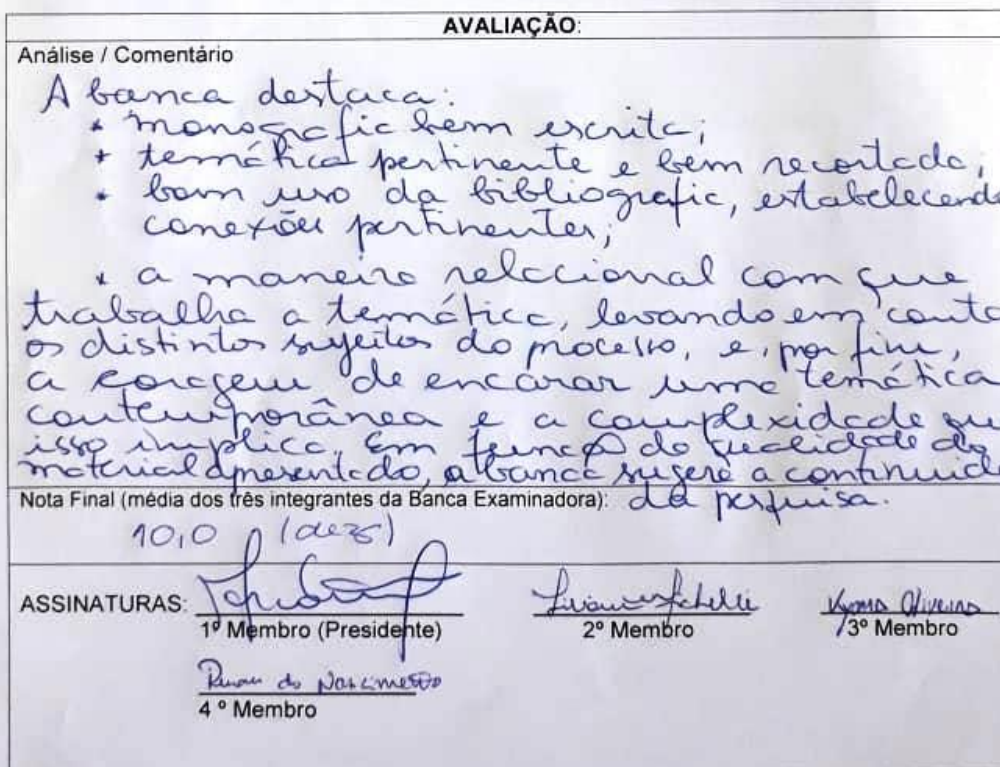 AVALIAÇÃO:
Análise / Comentário
A banca destaca:
* monografia bem escrita;
* temática pertinente e bem recortada;
* bom uso da bibliografia, estabelecendo
conexões pertinentes;
* a maneira relacional com que
trabalha a temática, levando em conta
os distintos sujeitos do processo, e, por fim,
a coragem de encarar uma temática
contemporânea e a complexidade que
isso implica. Em função da qualidade do
material apresentado, a banca sugere a continuid
Nota Final (média dos três integrantes da Banca Examinadora): da pesquisa.
10,0 (dez)
ASSINATURAS:
1º Membro (Presidente) 2º Membro 3º Membro
do Nascimento
4 º Membro